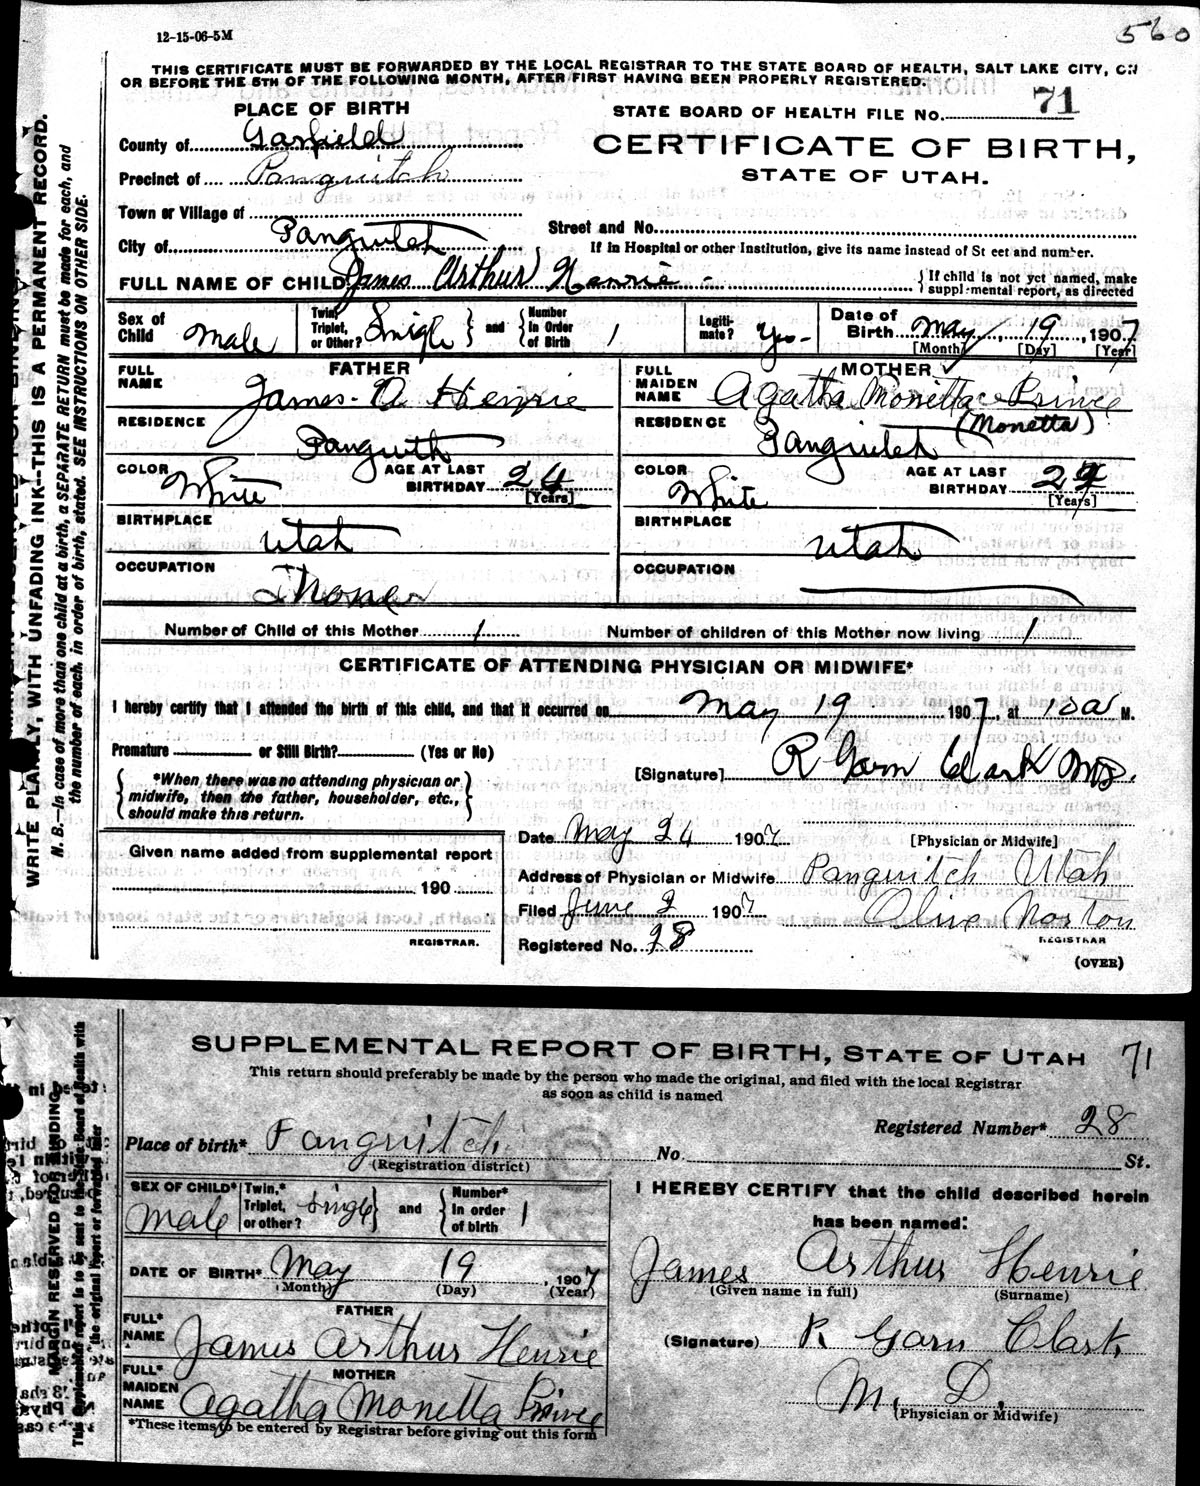 12-15-06-5M
560
THIS CERTIFICATE MUST BE FORWARDED BY THE LOCAL REGISTRAR TO THE STATE BOARD OF HEALTH, SALT LAKE CITY, ON
OR BEFORE THE 5TH OF THE FOLLOWING MONTH, AFTER FIRST HAVING BEEN PROPERLY REGISTERED.
PLACE OF BIRTH
STATE BOARD OF HEALTH FILE NO. 71
County of Garfield
CERTIFICATE OF BIRTH,
Precinct of Panguitch
STATE OF UTAH.
Town or Village of
Street and No.
City of Panguitch
If in Hospital or other Institution, give its name instead of St eet and number.
FULL NAME OF CHILD James Arthur Henrie
If child is not yet named, make supplemental report, as directed
Sex of Child Male
Twin, Triplet, or Other? Single and Number in Order of Birth 1
Legitimate? Yes
Date of Birth May 19, 1907
[Month] [Day] [Year]
FATHER
MOTHER
FULL NAME James A Henrie
FULL MAIDEN NAME Agatha Monetta Prince
(Monetta)
RESIDENCE Panguitch
RESIDENCE Panguitch
COLOR White AGE AT LAST BIRTHDAY 24 [Years]
COLOR White AGE AT LAST BIRTHDAY [Years]
BIRTHPLACE Utah
BIRTHPLACE Utah
OCCUPATION
OCCUPATION
Number of Child of this Mother 1
Number of children of this Mother now living 1
CERTIFICATE OF ATTENDING PHYSICIAN OR MIDWIFE*
I hereby certify that I attended the birth of this child, and that it occurred on May 19 1907, at M.
Premature or Still Birth? (Yes or No)
[Signature] R Garn Clark MD.
*When there was no attending physician or
midwife, then the father, householder, etc.,
should make this return.
Date May 24 1907
[Physician or Midwife]
Given name added from supplemental report
Address of Physician or Midwife Panguitch Utah
190
Filed June 2 1907 Olive Norton
REGISTRAR.
Registered No. 28
REGISTRAR
(OVER)
WRITE PLAINLY, WITH UNFADING INK--THIS IS A PERMANENT RECORD.
N. B.—In case of more than one child at a birth, a SEPARATE RETURN must be made for each, and
the number of each, in order of birth, stated. SEE INSTRUCTIONS ON OTHER SIDE.
SUPPLEMENTAL REPORT OF BIRTH, STATE OF UTAH 71
This return should preferably be made by the person who made the original, and filed with the local Registrar
as soon as child is named
Registered Number* 28
Place of birth* Panguitch No. St.
(Registration district)
SEX OF CHILD* Male
Twin,* Triplet, or other? Single and Number* In order of birth 1
I HEREBY CERTIFY that the child described herein
has been named:
DATE OF BIRTH* May 19, 1907
(Month) (Day) (Year)
James Arthur Henrie
(Given name in full) (Surname)
FATHER
FULL* NAME James Arthur Henrie
(Signature) R Garn Clark
M. D.
(Physician or Midwife)
MOTHER
FULL* MAIDEN NAME Agatha Monetta Prince
*These items to be entered by Registrar before giving out this form
MARGIN RESERVED FOR BINDING